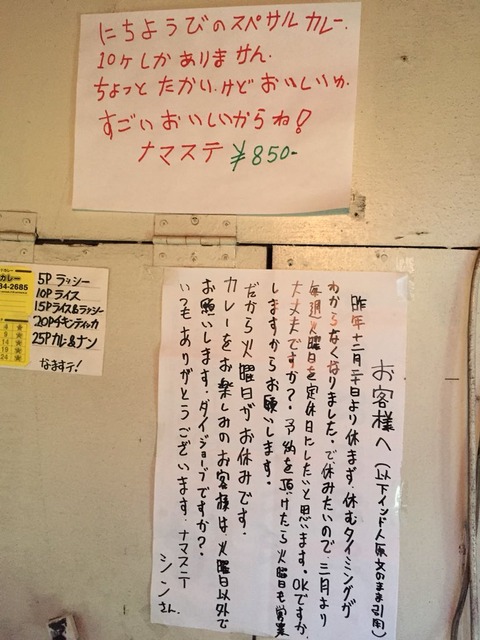 にちようびのスペサルカレー.
10ケしかありません.
ちょっとたかい.けどおいしいか.
すごいおいしいからね!
ナマステ ¥850-
カレー
84-2685
4
9
14
19
24
5P ラッシー
10P ライス
15P ライス&ラッシー
20P チキンティルカ
25P カレー&ナン
なますテ!
お客様へ(以下インド人原文のまま引用)
昨年十二月二十日より休まず.休むタイミングが
わからなくなりました.で休みたいので.三月より
毎週火曜日を定休日にしたいと思います。OKですか.
大丈夫ですか?.予約を頂けたら火曜日も営業
しますからお願いします。
だから火曜日がお休みです.
カレーをお楽しみのお客様は火曜日以外で
お願いします.ダイジョーブですか?.
いつもありがとうございます.ナマステ
シンさん.